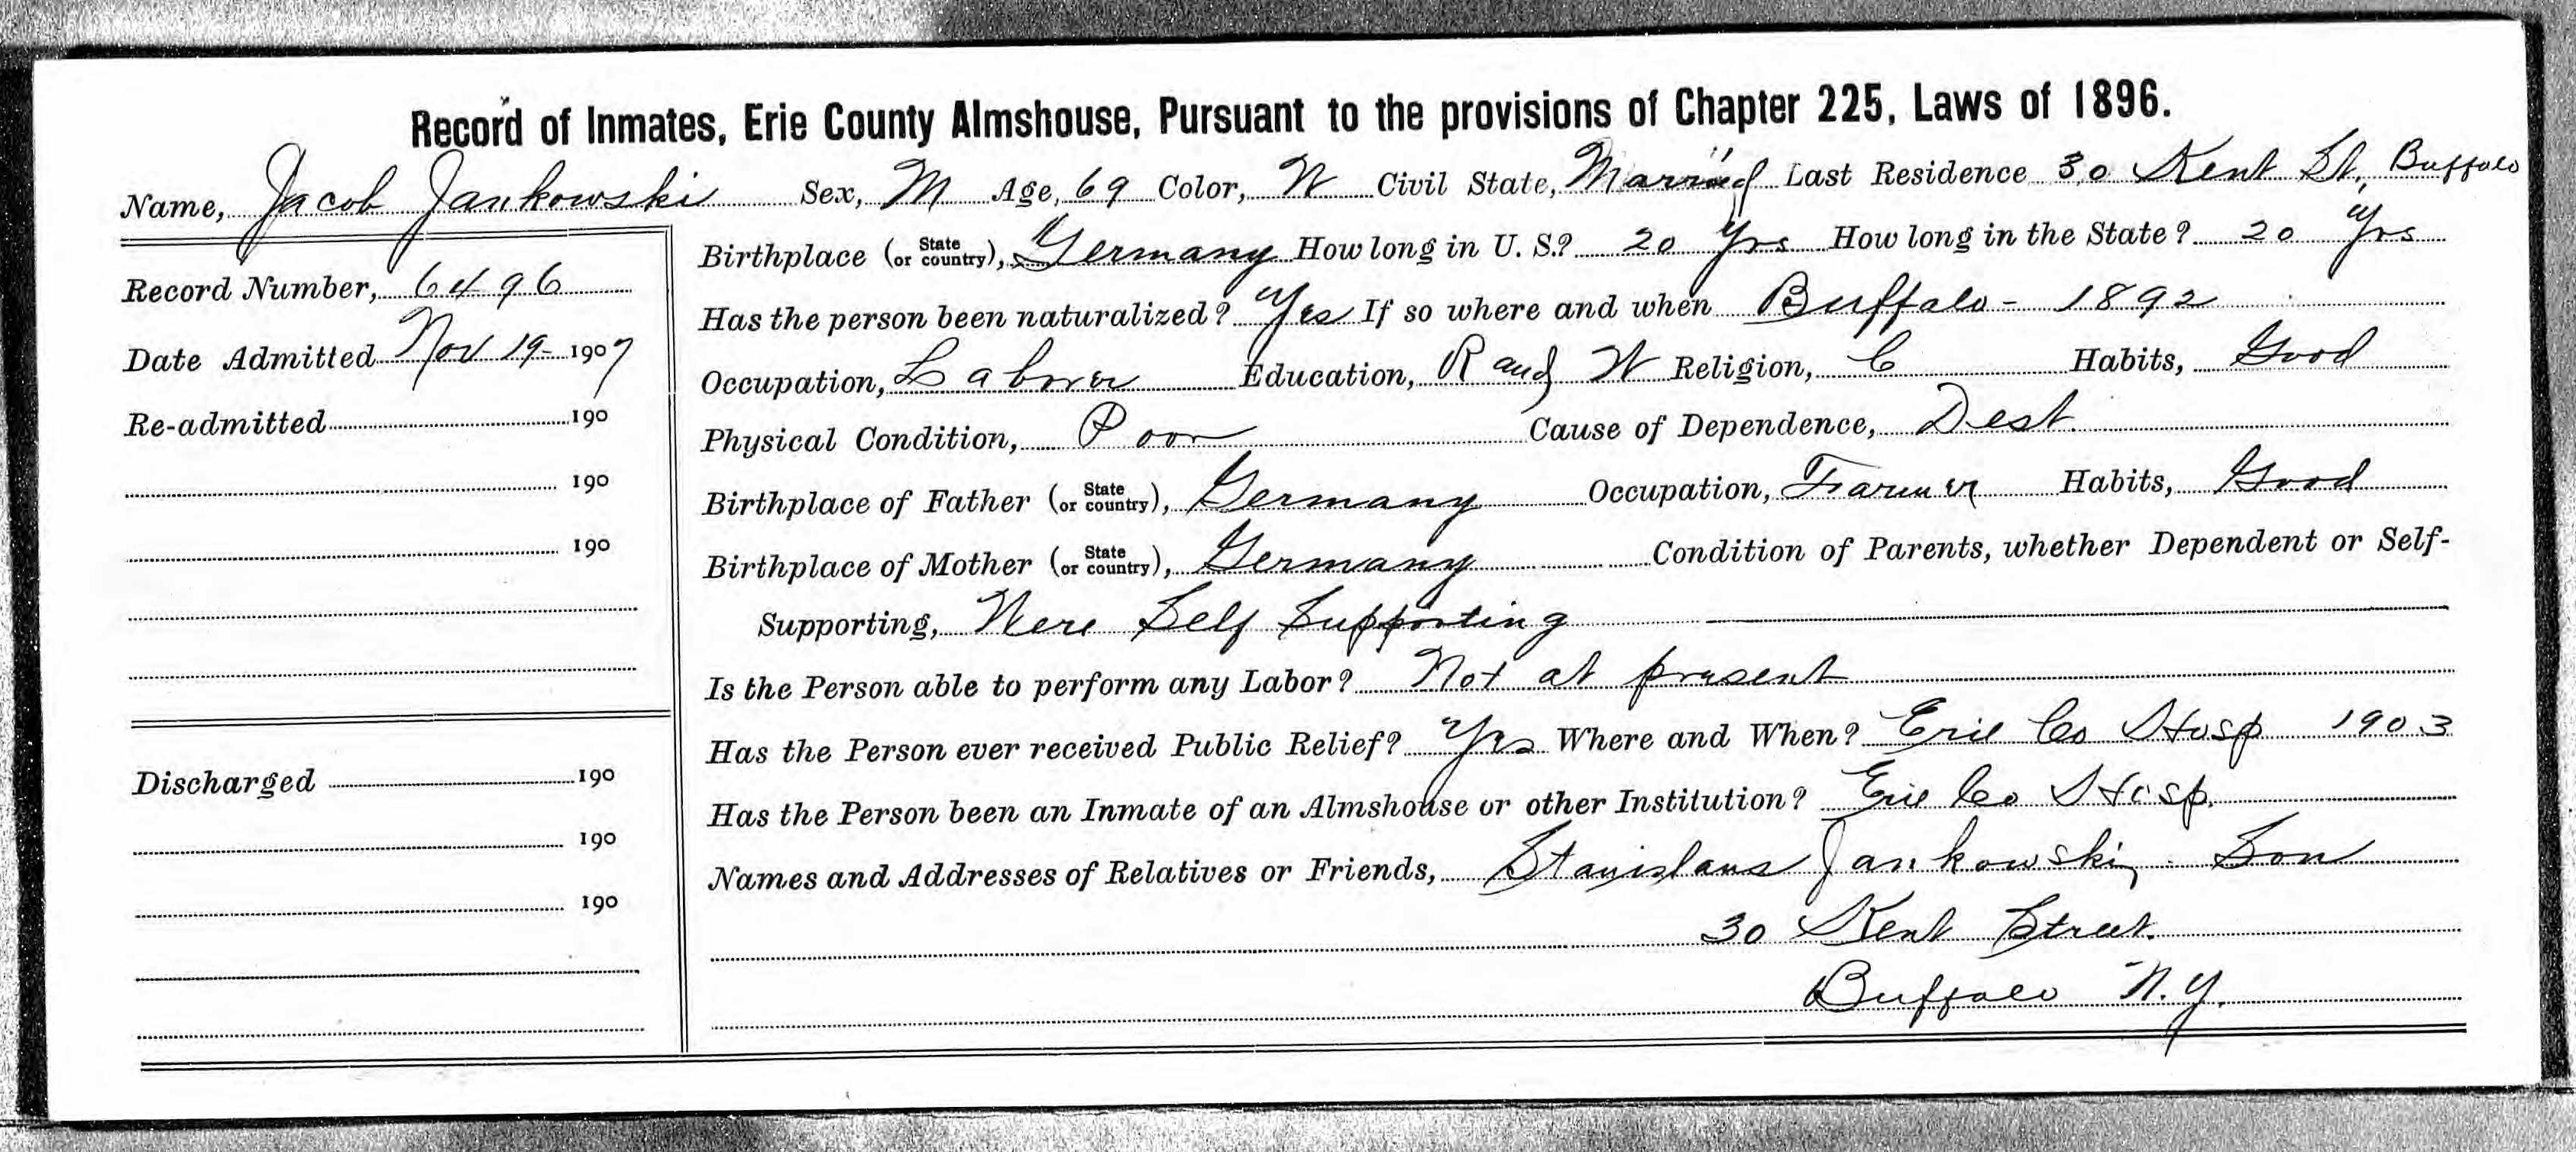 Record of Inmates, Erie County Almshouse, Pursuant to the provisions of Chapter 225, Laws of 1896.
Name, Jacob Jankowski Sex, M Age, 69 Color, W Civil State, Married Last Residence 30 Kent St, Buffalo
Record Number, 6496
Date Admitted Nov 19- 1907
Re-admitted 190
190
190
Discharged 190
190
190
Birthplace (or State country), Germany How long in U. S.? 20 Yrs How long in the State? 20 Yrs
Has the person been naturalized? Yes If so where and when Buffalo - 1892
Occupation, Laborer Education, R and W Religion, C Habits, Good
Physical Condition, Poor Cause of Dependence, Dest.
Birthplace of Father (or State country), Germany Occupation, Farmer Habits, Good
Birthplace of Mother (or State country), Germany Condition of Parents, whether Dependent or Self-
Supporting, Were Self Supporting
Is the Person able to perform any Labor? Not at present
Has the Person ever received Public Relief? Yes Where and When? Erie Co Hosp 1903
Has the Person been an Inmate of an Almshouse or other Institution? Erie Co Hosp.
Names and Addresses of Relatives or Friends, Stanislaus Jankowski, Son
30 Kent Street.
Buffalo N.Y.